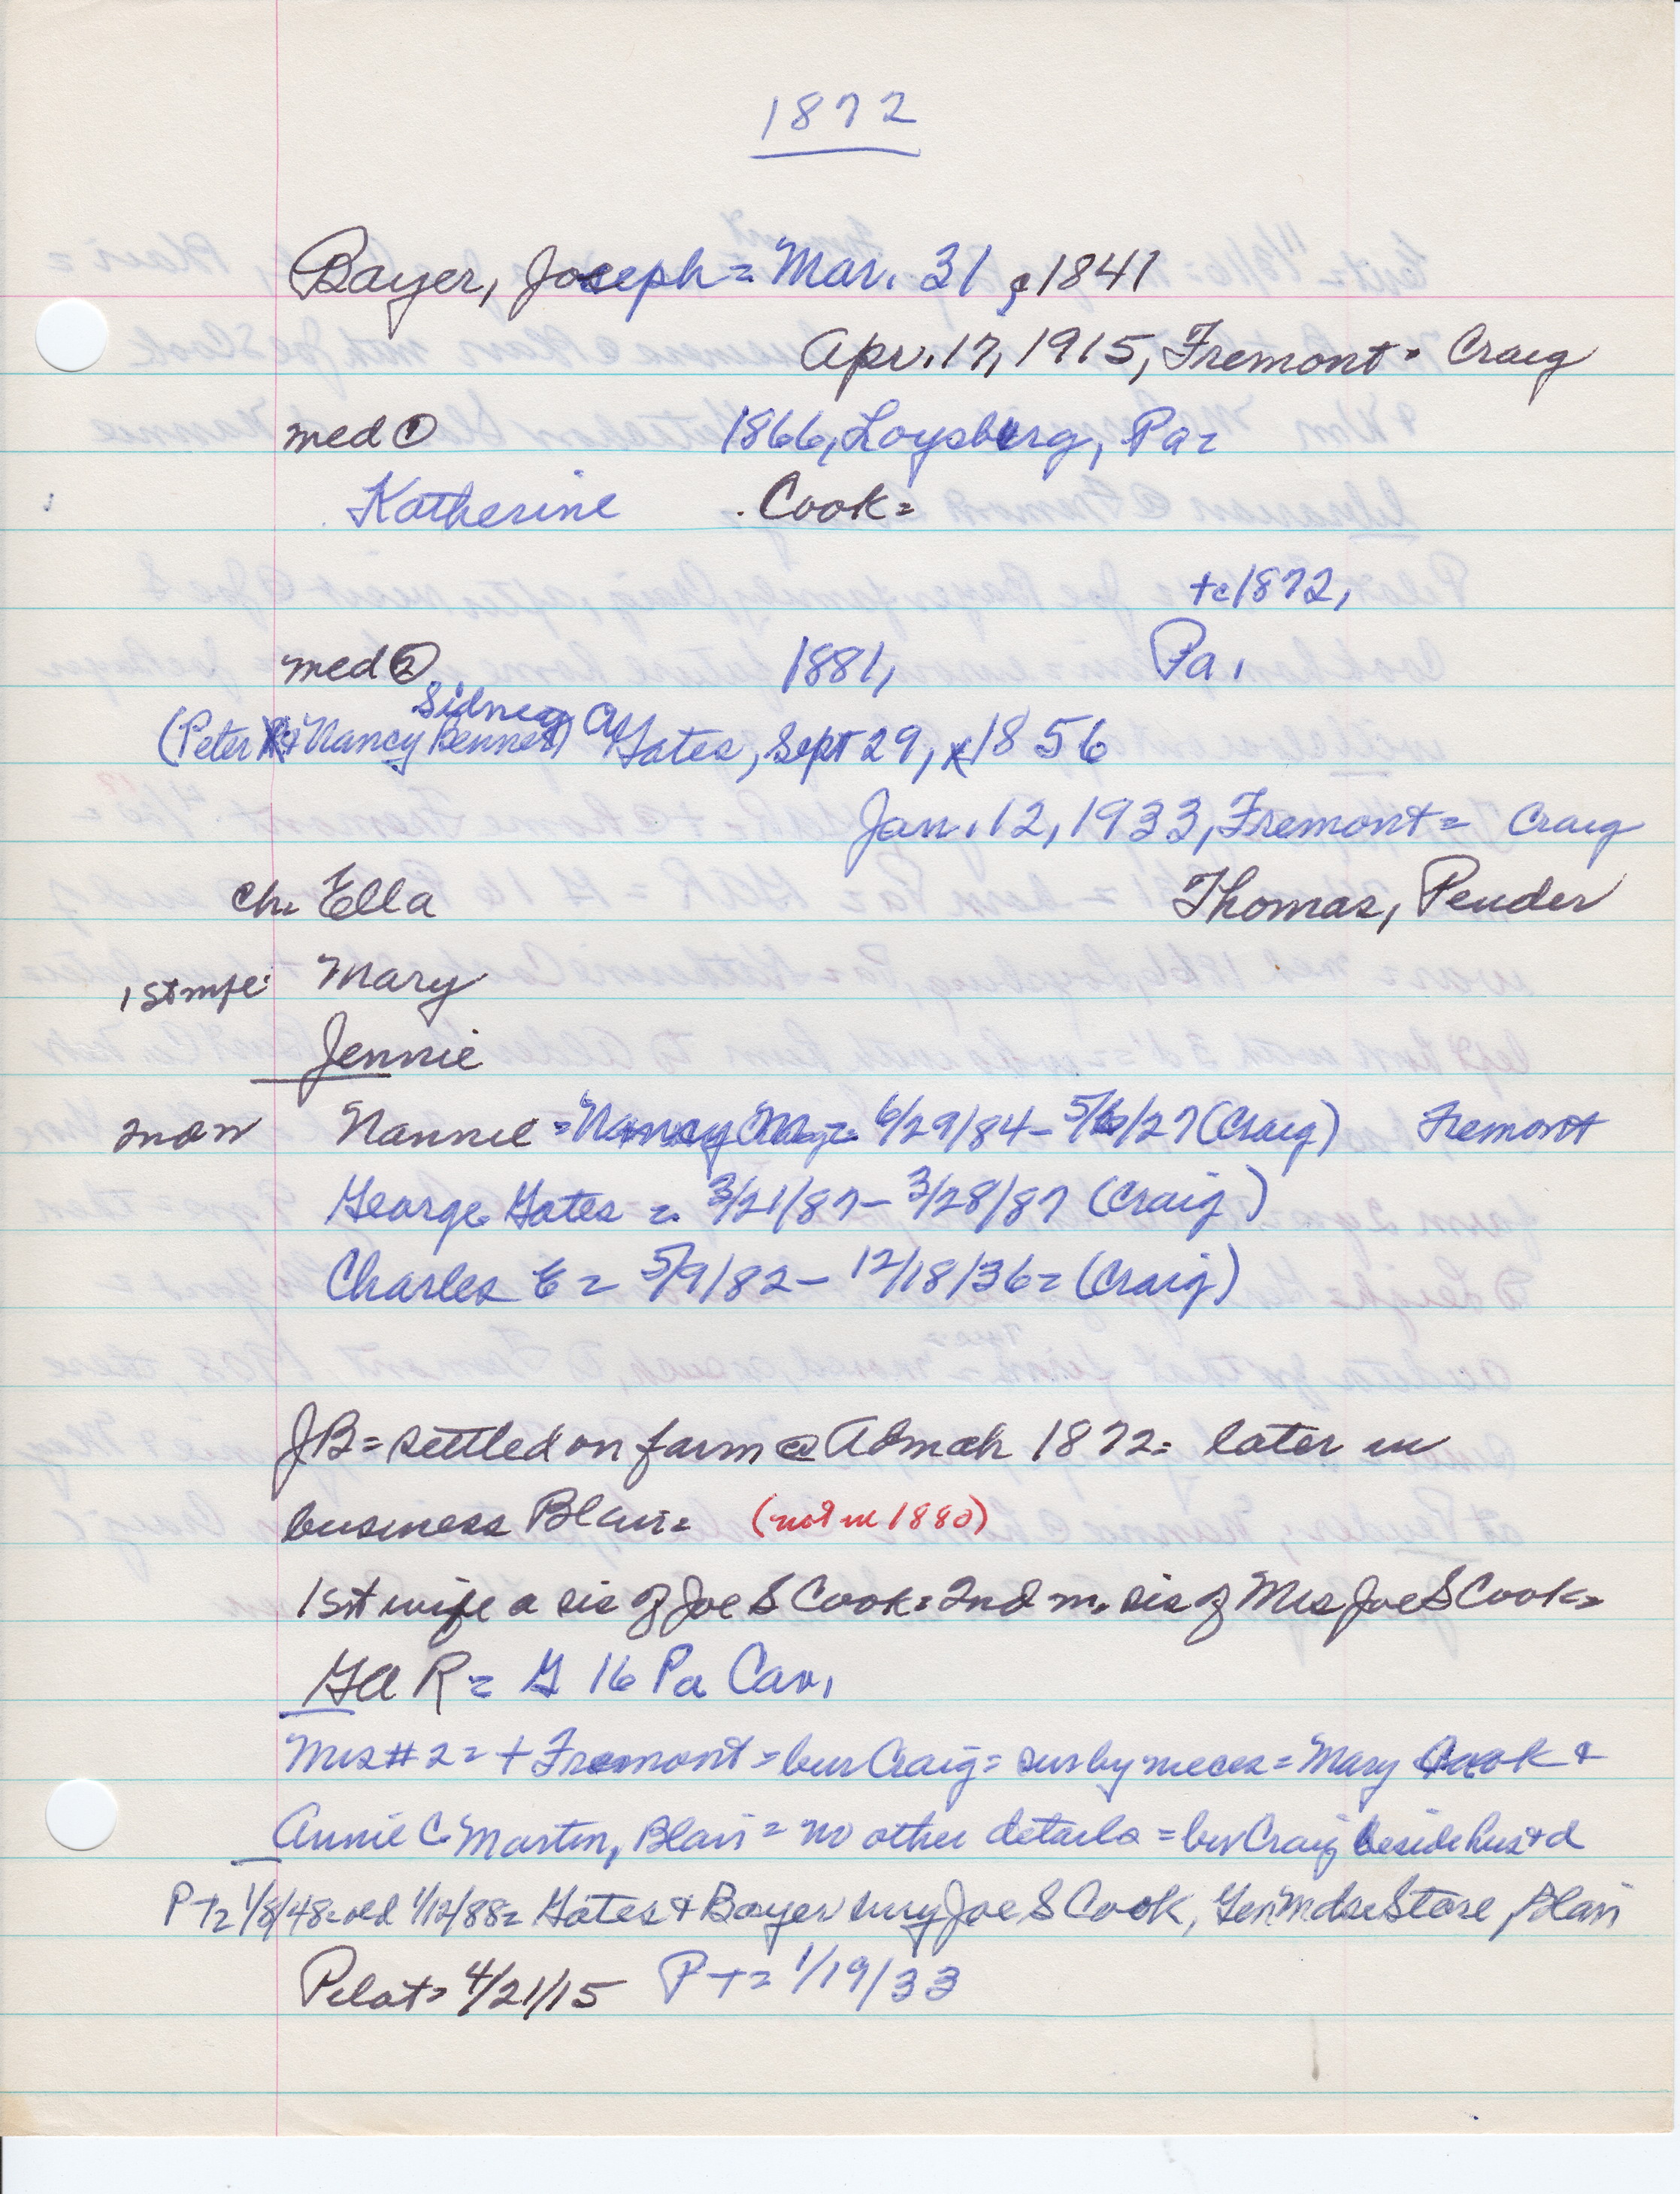 1872
Bayer, Joseph = Mar. 31, c1841
Apr. 17, 1915, Fremont = Craig
med ① 1866, Loysburg, Pa =
Katherine Cook =
+c1872,
med ② 1881, Pa,
Sidney A
(Peter & Nancy Bennet) Gates, Sept 29, 1856
Jan. 12, 1933, Fremont = Craig
ch = Ella Thomas, Pender
1st mfe: Mary
Jennie
2nd w Nannie = Nancy May = 6/29/84 - 5/6/27 (Craig) Fremont
George Gates = 3/21/87 - 3/28/87 (Craig)
Charles E = 5/9/82 - 12/18/36 = (Craig)
JB = settled on farm @ Admah 1872 = later in
business Blair = (not in 1880)
1st wife a sis of Joe S Cook = 2nd m. sis of Mrs Joe S Cook =
GAR = G 16 Pa Cav,
Mrs #2 = + Fremont = bur Craig = sur by nieces = Mary Cook &
Annie C Martin, Blair = no other details = bur Craig beside husbd
P+ = 1/8/48 = old 1/12/88 = Gates & Bayer buy Joe S Cook, Gen Mdse Store, Blair
Pilot = 4/21/15 P+ = 1/19/33